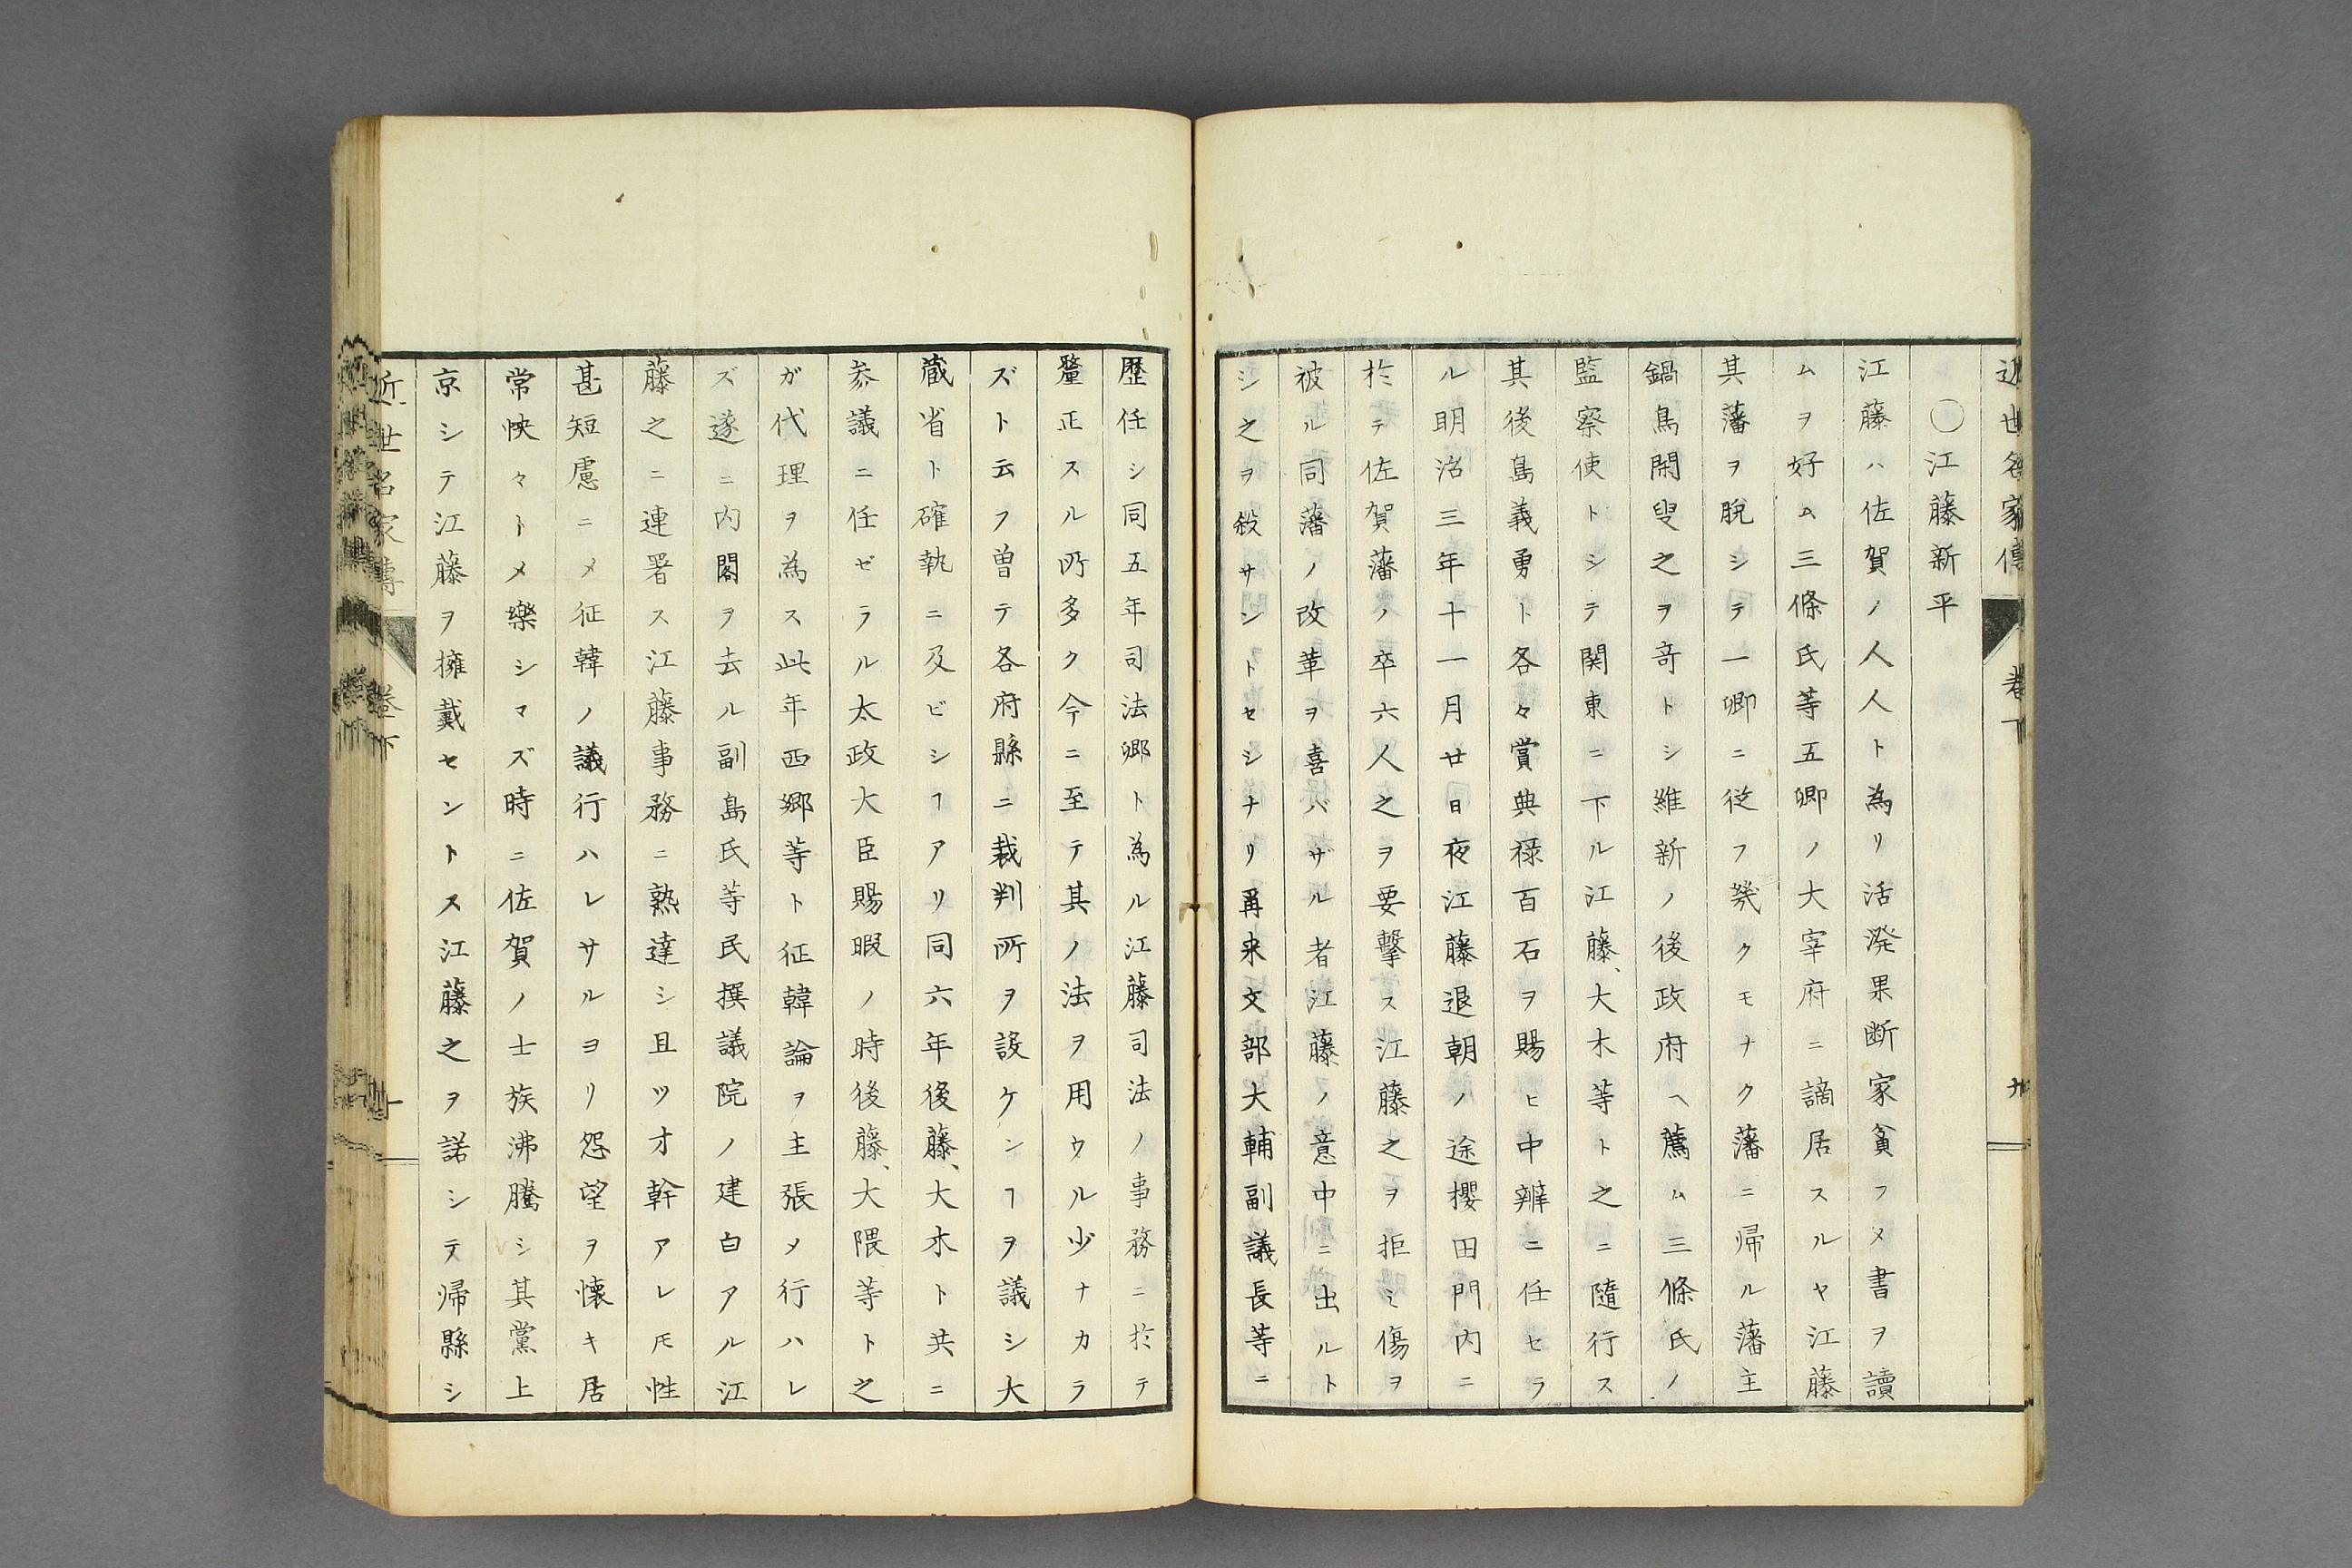 近世名家傳 卷下
〇江藤新平
江藤ハ佐賀ノ人人ト為リ活潑果断家貧フメ書ヲ讀
ムヲ好ム三條氏等五卿ノ大宰府ニ謫居スルヤ江藤
其藩ヲ脱シテ一卿ニ從フ幾クモナク藩ニ帰ル藩主
鍋島閑叟之ヲ奇トシ維新ノ後政府ヘ薦ム三條氏ノ
監察使トシテ関東ニ下ル江藤、大木等ト之ニ隨行ス
其後島義勇ト各々賞典禄百石ヲ賜ヒ中辨ニ任セラ
ル明治三年十一月廿日夜江藤退朝ノ途櫻田門内ニ
於テ佐賀藩ノ卒六人之ヲ要撃ス江藤之ヲ拒ミ傷ヲ
被ル同藩ノ改革ヲ喜バザル者江藤ノ意中ニ出ルト
シ之ヲ殺サントセシナリ再来文部大輔副議長等ニ
歴任シ同五年司法卿ト為ル江藤司法ノ事務ニ於テ
釐正スル所多ク今ニ至テ其ノ法ヲ用ウル少ナカラ
ズト云フ曽テ各府縣ニ裁判所ヲ設ケンヿヲ議シ大
蔵省ト確執ニ及ビシヿアリ同六年後藤、大木ト共ニ
参議ニ任ゼラル太政大臣賜暇ノ時後藤、大隈等ト之
ガ代理ヲ為ス此年西郷等ト征韓論ヲ主張メ行ハレ
ズ遂ニ内閣ヲ去ル副島氏等民撰議院ノ建白アル江
藤之ニ連署ス江藤事務ニ熟達シ且ツオ幹アレ𪜈性
甚短慮ニメ征韓ノ議行ハレサルヨリ怨望ヲ懐キ居
常怏々トメ樂シマズ時ニ佐賀ノ士族沸騰シ其黨上
京シテ江藤ヲ擁戴セントス江藤之ヲ諾シテ帰縣シ
近世名家傳 卷下